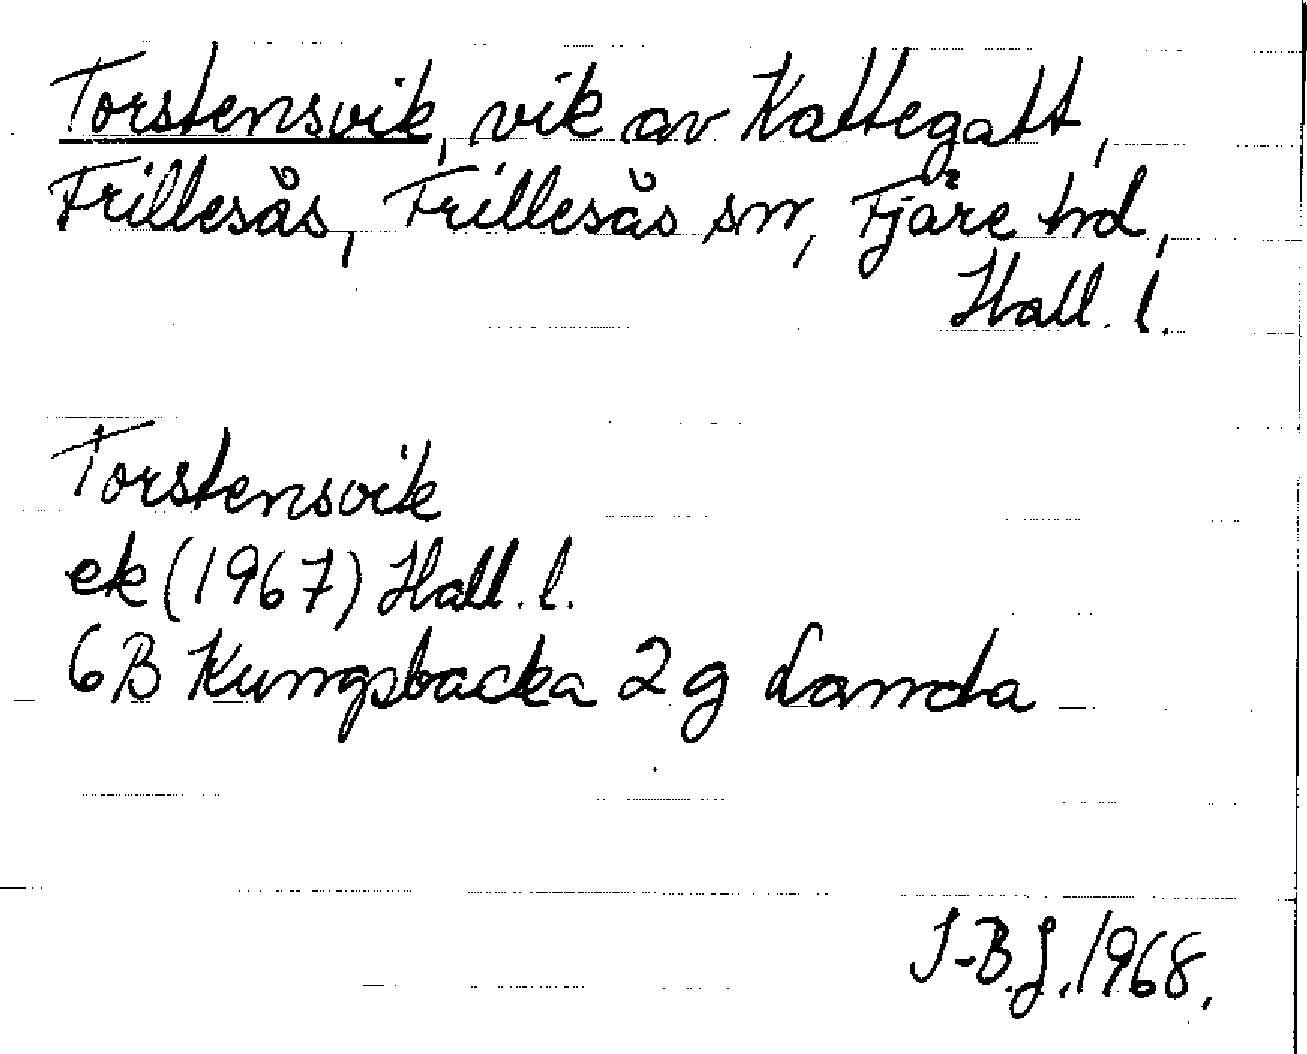 Torstensvik, vik av Kattegatt,
Frillesås, Frillesås sn, Fjäre hd,
Hall. l.
Torstensvik
ek (1967) Hall. l.
6B Kungsbacka 2 g Landa
I-B.J. 1968.